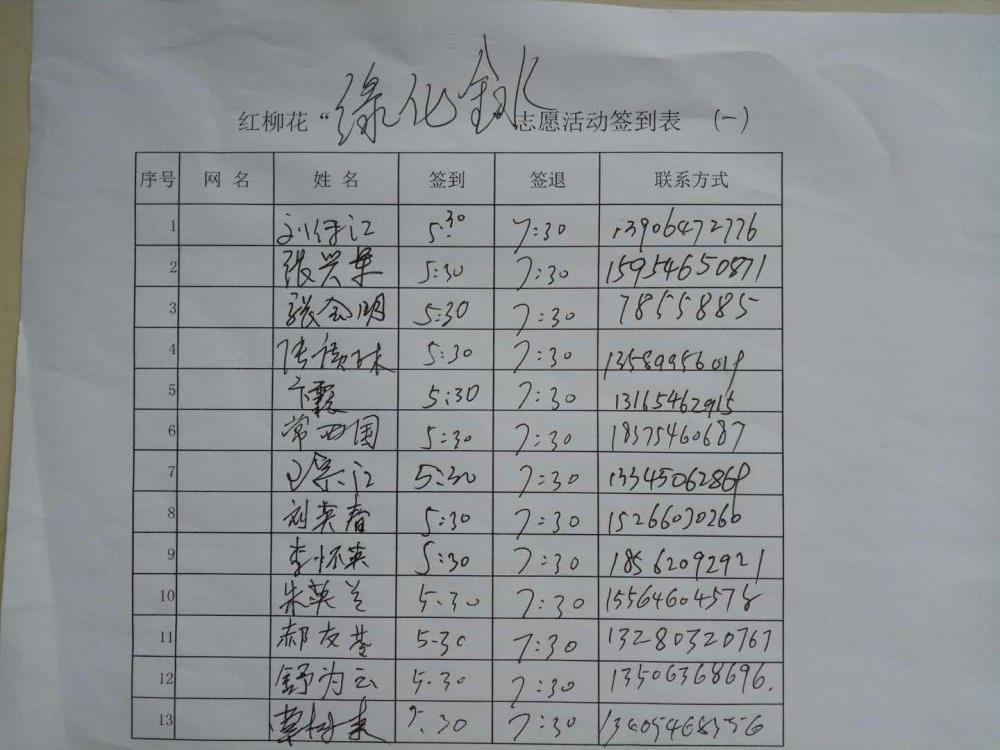 红柳花“绿化 志愿活动签到表 (一)
序号 网 名 姓 名 签到 签退 联系方式
1 刘保江 5:30 7:30 13906472776
2 张兴军 5:30 7:30 15954650871
3 张金明 5:30 7:30 7855885
4 5:30 7:30 13589956019
5 卞霞 5:30 7:30 13165462915
6 常田国 5:30 7:30 18375460687
7 江 5:30 7:30 13345062869
8 刘英春 5:30 7:30 15266030260
9 李怀英 5:30 7:30 18562092921
10 朱英兰 5.30 7:30 15564604578
11 郝友 5-30 7:30 13280320767
12 舒为云 5.30 7:30 13506368696.
13 30 7:30